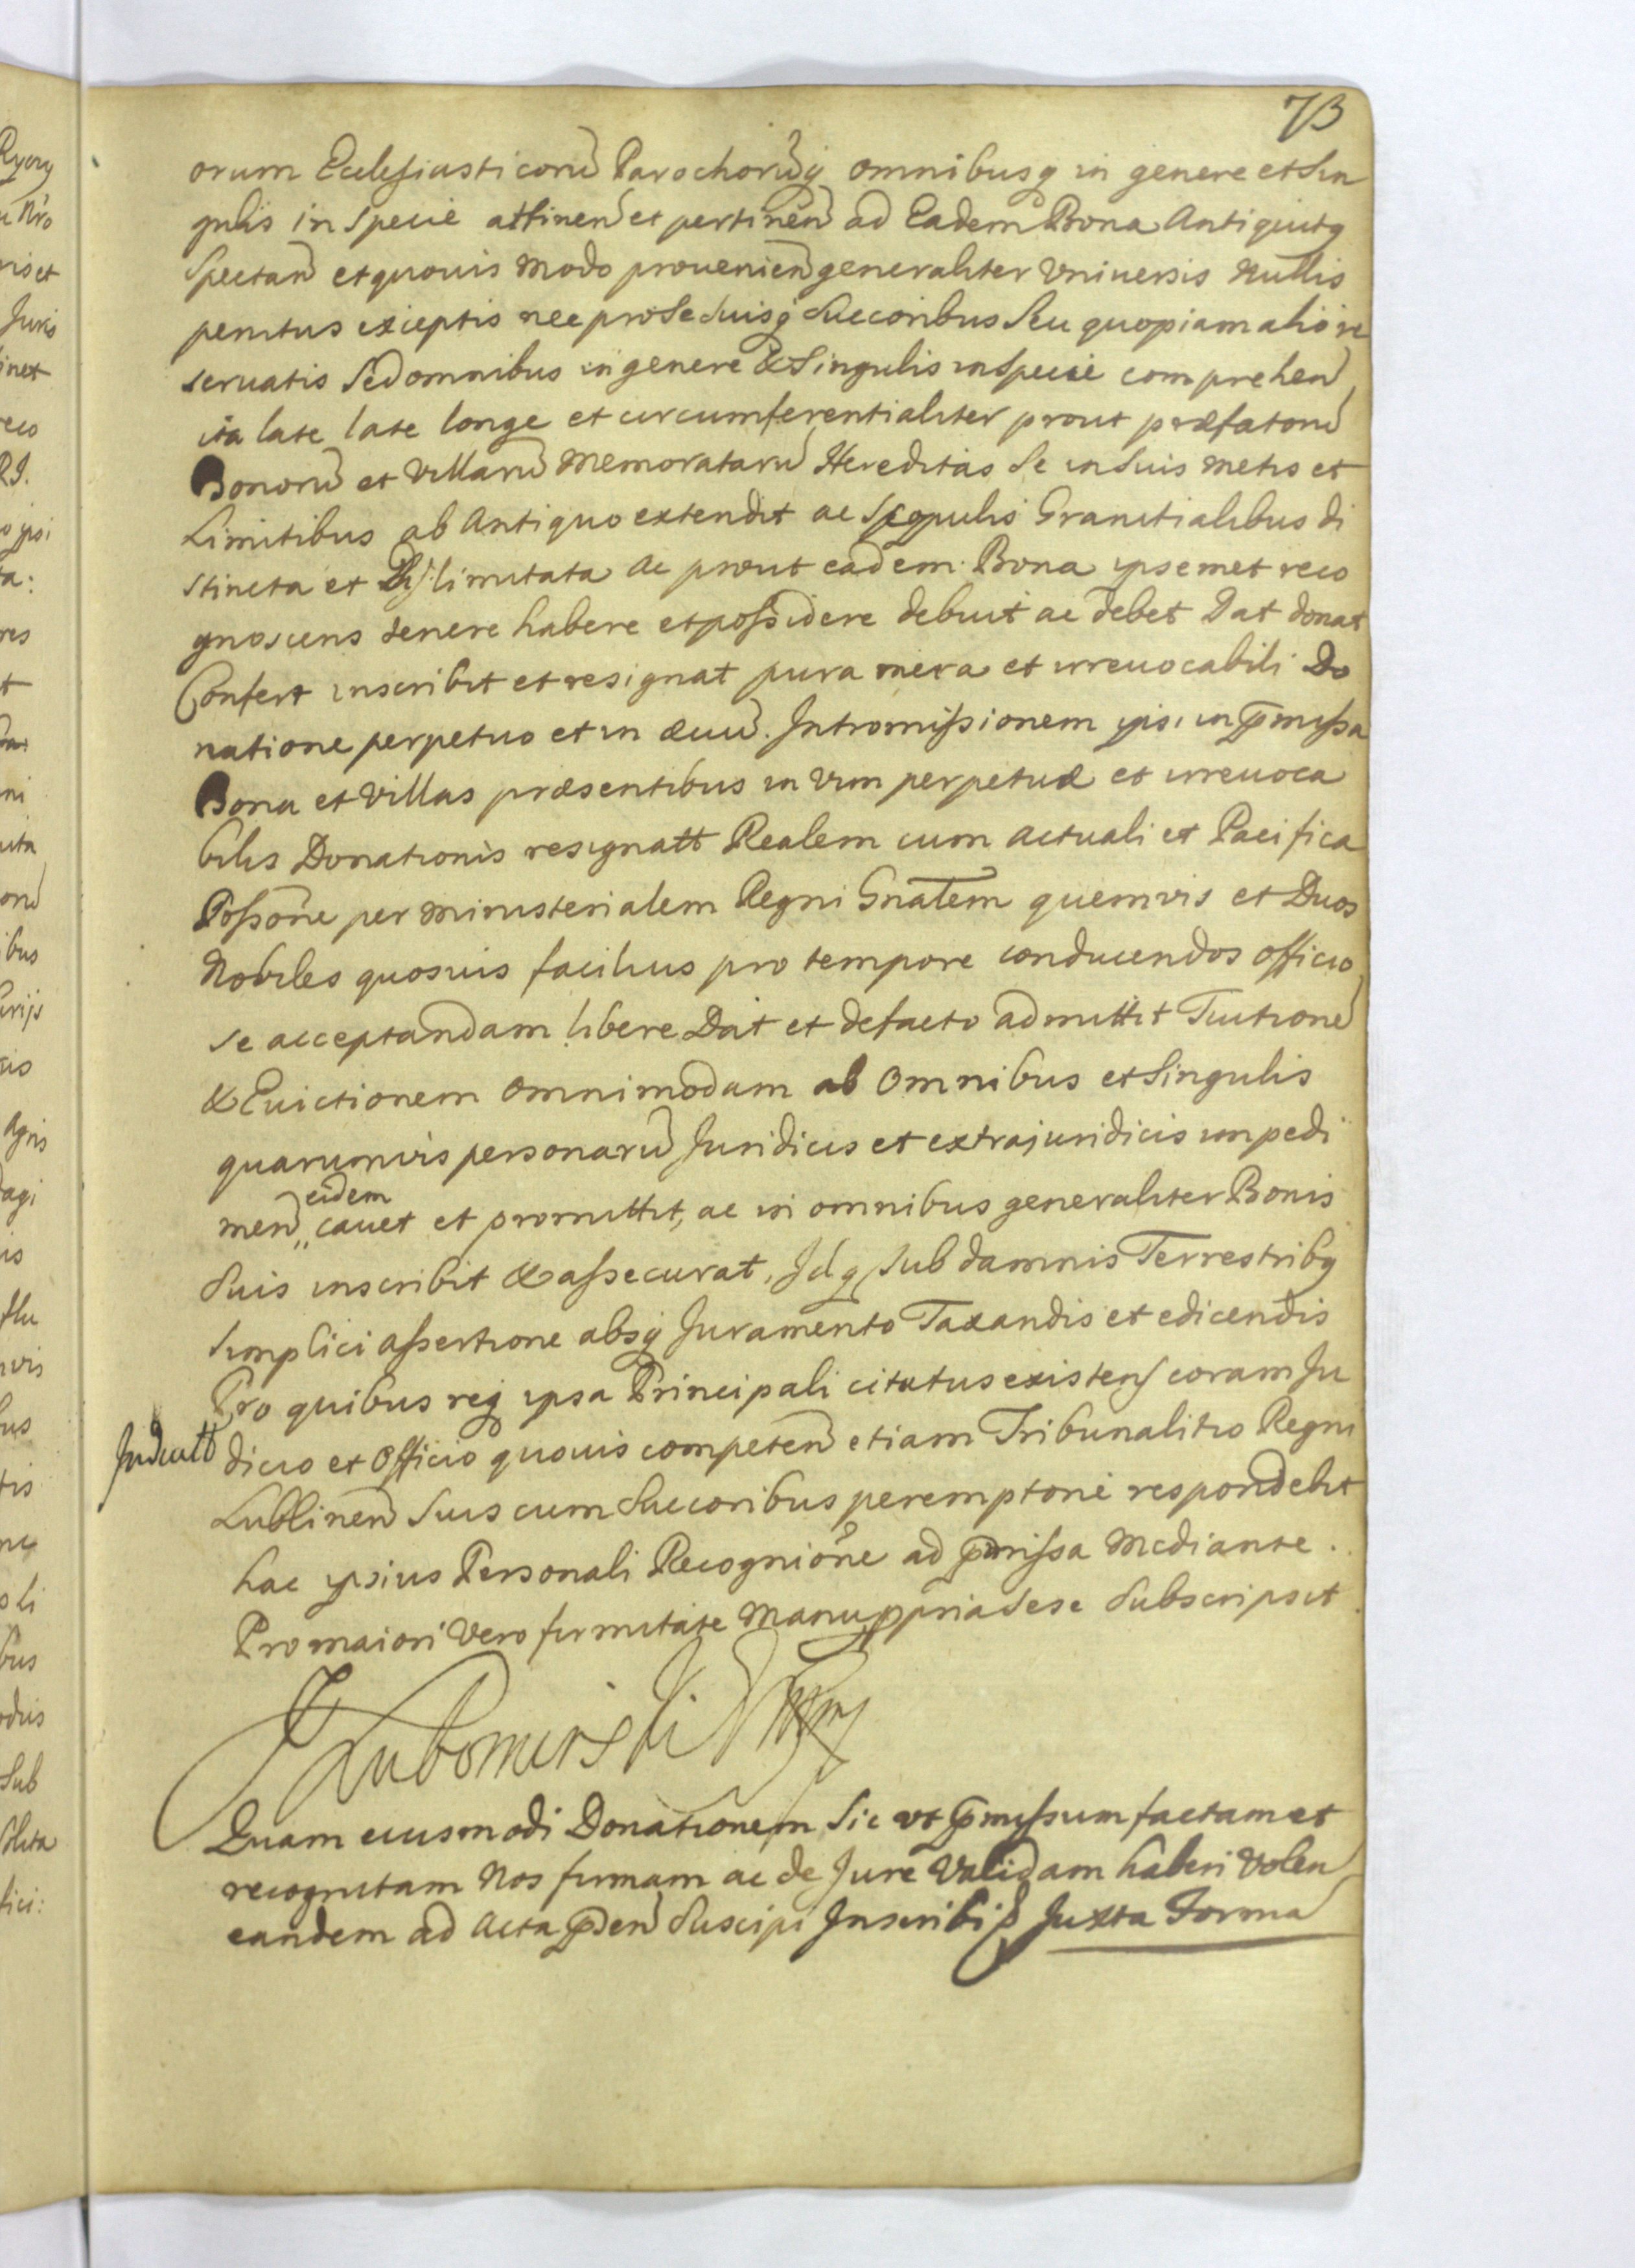 73
orum Ecclesiasticorũ Parochorũq omnibusq in genere et Sin
gulis in Specie attinen et pertinen ad Eadem Bona Antiquitq
Spectan et quouis modo prouenien generaliter Vniuersis Nullis
penitus exceptis nec pro Se Suisq Succoribus Seu quopiam alio re
seruatis Sed omnibus in genere & Singulis in specie comprehen
ita late late longe et circumferentialiter prout præfatorũ
Bonorũ et Villarũ Memoratarũ Hereditas Se in Suis metis et
Limitibus ab Antiquo extendit ac Scopulis Granitialibus di
stincta et Dislimitata ac prout eadem Bona ipsemet reco
gnoscens tenere habere et possidere debuit ac debet Dat donat
Confert inscribit et resignat pura mera et irreuocabili Do
natione perpetuo et in æuũ. Intromissionem ipsi in p̃missa
Bona et Villas præsentibus in Vim perpetuæ et irreuoca
bilis Donationis resignatt Realem cum actuali et Pacifica
Possone per Ministerialem Regni Gnalem quemvis et Duos
Nobiles quosuis facilius pro tempore conducendos officio
se acceptandam libere Dat et defacto admittit Tuitionẽ
& Euictionem omnimodam ab Omnibus et Singulis
quarumvis personarũ Juridicis et extrajuridicis impedi
eidem
men,, cauet et promittit, ac in omnibus generaliter Bonis
Suis inscribit & assecurat, Idq Sub damnis Terrestribq
Simplici assertione absq Juramento Taxandis et edicendis
Pro quibus req ipsa Principali citatus existens coram Ju
Juducatt dicio et Officio quouis competen etiam Tribunalitio Regni
Lublinen Suis cum Succoribus peremptorie respondebit
hac ipsius Personali Recognione ad p̃missa Mediante.
Pro maiori Vero firmitate Manu ppria Sese Subscripsit
J Lubomirski
Quam eiusmodi Donationem Sic vt p̃missum factam et
recognitam Nos firmam ac de Jure Validam haberi Volen
eandem ad Acta p̃sen Suscipi Inscribi Juxta Forma